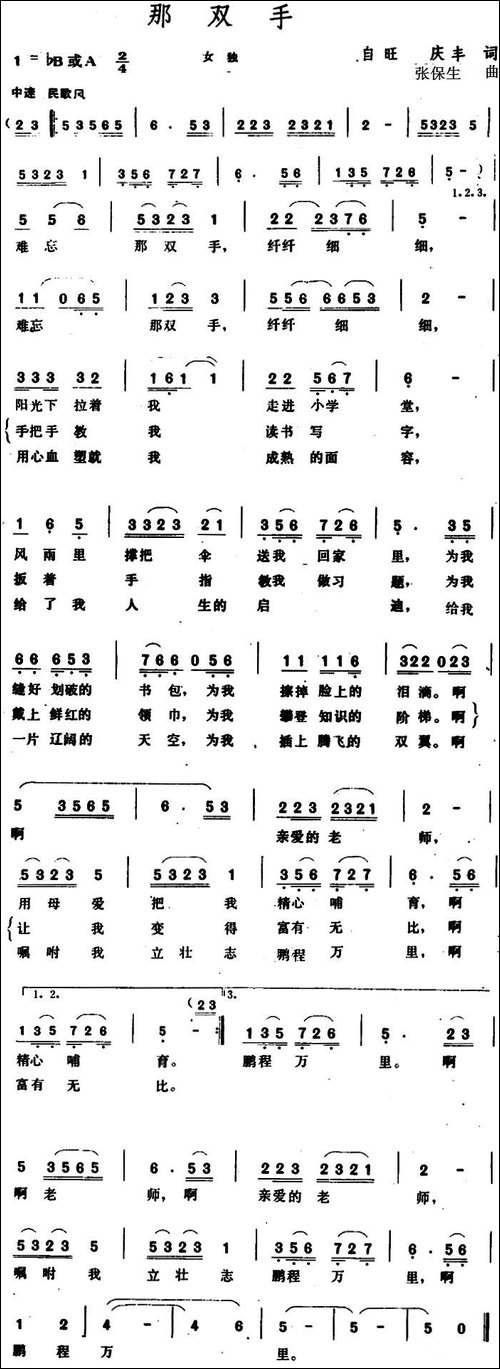 那双手
1=♭B或A 2/4 女独 自旺 庆丰 词
张保生 曲
中速 民歌风
(23 ‖: 53565 | 6. 53 | 2223 2321 | 2 - | 5323 5 |
5323 1 | 356 727 | 6. 56 | 135 726 | 5 - ) |
1.2.3.
5 5 6 | 5323 1 | 22 2376 | 5 - |
难忘 那双手, 纤纤细细,
11 065 | 123 3 | 556 6653 | 2 - |
难忘 那双手, 纤纤细细,
333 32 | 161 1 | 22 567 | 6 - |
阳光下拉着我 走进小学堂,
手把手教我 读书写字,
用心血塑就我 成熟的面容,
1 6 5 | 3323 21 | 356 726 | 5. 35 |
风雨里撑把伞送我回家里,为我
扳着手指教我做习题,为我
给了我人生的启迪,给我
66 653 | 766 056 | 11 116 | 322 023 |
缝好划破的书包,为我擦掉脸上的泪滴。啊
戴上鲜红的领巾,为我攀登知识的阶梯。啊
一片辽阔的天空,为我插上腾飞的双翼。啊
5 3565 | 6. 53 | 223 2321 | 2 - |
啊 亲爱的老师,
5323 5 | 5323 1 | 356 727 | 6. 56 |
用母爱把我精心哺育,啊
让我变得富有无比,啊
嘱咐我立壮志鹏程万里,啊
1.2. (23 3.
135 726 | 5 - :‖ 135 726 | 5. 23 |
精心哺育。 鹏程万里。啊
富有无比。
5 3565 | 6. 53 | 223 2321 | 2 - |
啊老师,啊 亲爱的老师,
5323 5 | 5323 1 | 356 727 | 6. 56 |
嘱咐我立壮志鹏程万里,啊
1 2 | 4 - | 4 6 | 5 - | 5 - | 5 0 ‖
鹏程万里。